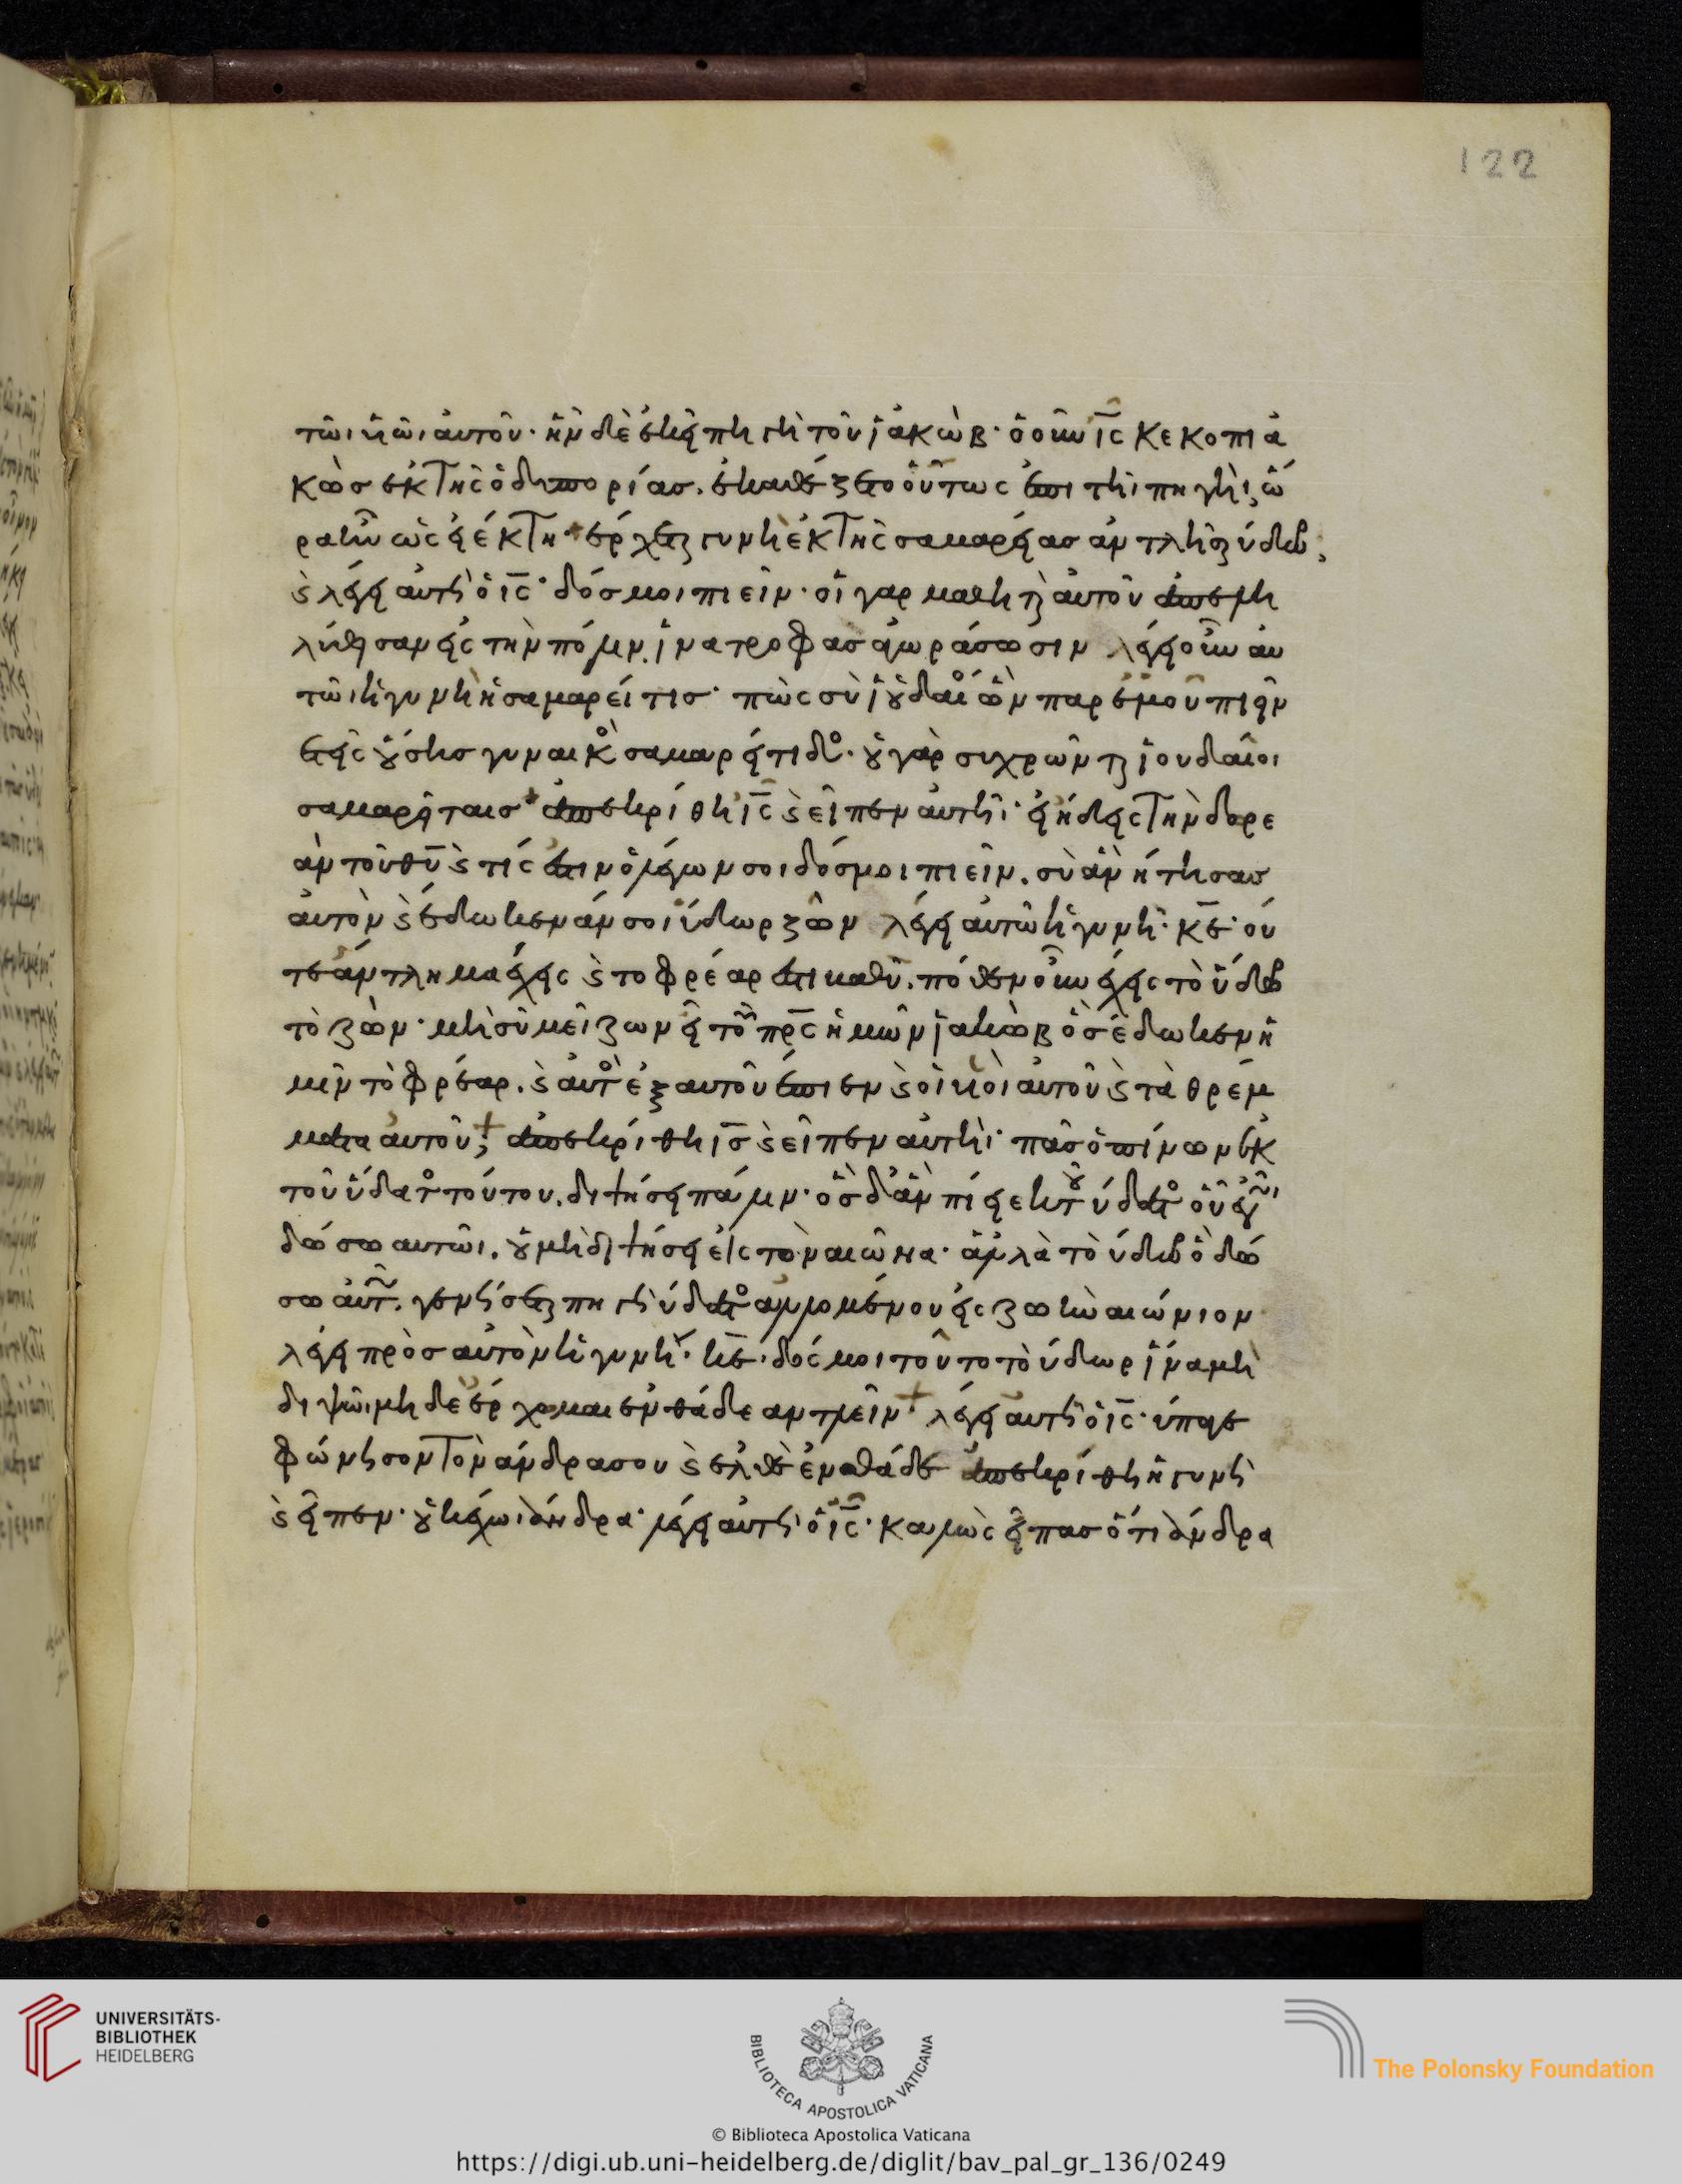 122
τῶι υἱῶι αὐτοῦ· ἦν δὲ ἐκεῖ πηγὴ τοῦ ἰακώβ· ὁ οὖν ις κεκοπια
κὼσ ἐκ τῆς ὁδοιπορίασ. ἐκαθέζετο οὕτως ἐπὶ τῆι πηγῆι, ὥ
ρα ἦν ὡς εἰ ἕκτη· ἔρχεται γυνὴ ἐκ τῆς σαμαρείασ ἀντλῆσαι ὕδωρ,
κ λέγει αὐτῆ ὁ ις· δόσ μοι πιεῖν· οἱ γαρ μαθηταὶ αὐτοῦ ἀπελη
λύθησαν εἰς τὴν πόλιν. ἵνα τροφασ ἀγωράσωσιν λέγει οὖν αυ
τῶι ἡ γυνὴ ἡ σαμαρείτισ· πῶς σὺ ἰουδαῖος ὢν παρ ἐμοῦ πιεῖν
αἰτεῖς οὔσησ γυναικὸς σαμαρείτιδος· οὐ γὰρ συχρῶνται ἰουδαῖοι
σαμαρείταισ· ἀπεκρίθη ις κ εἶπεν αὐτῆι· εἰ ἤδεις τὴν δωρε
ὰν τοῦ θυ κ τίς ἐστιν ὁ λέγων σοι δόσ μοι πιεῖν. σὺ ἂν ήτησασ
αὐτὸν κ ἔδωκεν άν σοι ὕδωρ ζῶν λέγει αὐτῶ ἡ γυνή· κε· ού
τε άντλημα έχεις κ το φρέαρ ἐστὶ βαθύ. πόθεν οὖν έχεις τὸ ὕδωρ
τὸ ζῶν· μὴ σὺ μείζων εἶ τοῦ πρς ἡμῶν ἰακὼβ ὃσ ἔδωκεν ἡ
μῖν τὸ φρέαρ. κ αὐτὸς ἐξ αυτοῦ ἔπιεν κ οἱ υἱοὶ αὐτοῦ κ τὰ θρέμ
ματα αὐτοῦ; ἀπεκρίθη ις κ εἶπεν αὐτῆι· πᾶσ ὁ πίνων ἐκ
τοῦ ὕδατος τούτου. διψήσει πάλιν· ὃσ δ ἂν πίει ἐκ τοῦ ύδατος οὗ ἐγὼ
δώσω αυτῶι. οὐ μὴ διψήσει εἰς τὸν αιῶνα· ἀλλὰ τὸ ύδωρ ὃ δώ
σω αὐτῶ. γενήσεται πηγὴ ύδατος αλλομένου εἰς ζωὴν αιώνιον
λέγει πρὸσ αὐτὸν ἡ γυνή· κε· δός μοι τοῦτο τὸ ύδωρ ἵνα μὴ
διψῶ μη δε έρχομαι ἐνθάδε αντλεῖν· λέγει αυτῆ ὁ ις· ύπαγε
φώνησον τὸν άνδρα σου κ ἐλθὲ ἐνθάδε ἀπεκρίθη ἡ γυνὴ
κ εἶπεν· οὐκ έχωι άνδρα· λέγει αὐτῆ ὁ ις· καλῶς εἶπασ ὅτι άνδρα
UNIVERSITÄTS-
BIBLIOTHEK
HEIDELBERG
BIBLIOTECA APOSTOLICA VATICANA
The Polonsky Foundation
© Biblioteca Apostolica Vaticana
https://digi.ub.uni-heidelberg.de/diglit/bav_pal_gr_136/0249